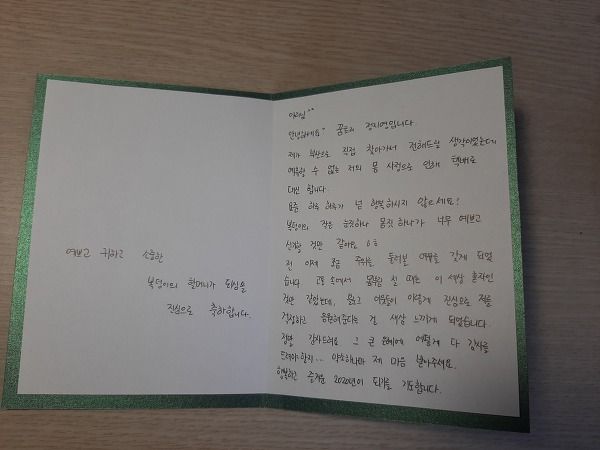 예쁘고 귀하고 소중한
복덩이의 할머니가 되심을
진심으로 축하합니다.
안녕하세요~ 정지영입니다.
제가 부산으로 직접 찾아가서 전해드릴 생각이었는데
예측할 수 없는 저의 몸 사정으로 인해 택배로
대신 합니다.
요즘 하루 하루가 넘 행복하시지 않으세요?
복덩이의 작은 눈짓하나 몸짓 하나가 너무 예쁘고
신기할 것만 같아요 ㅎㅎ
전 이제 조금 주위를 둘러볼 여유를 갖게 되었
습니다. 고통 속에서 몸부림 칠 때는 이 세상 혼자인
것만 같았는데, 많은 이들이 이렇게 진심으로 저를
걱정하고 응원해준다는 걸 새삼 느끼게 되었습니다.
정말 감사드려요 그 큰 은혜에 어떻게 다 감사를
드려야할지... 약소하나마 제 마음 받아주세요.
행복하고 즐거운 2020년이 되기를 기도합니다.